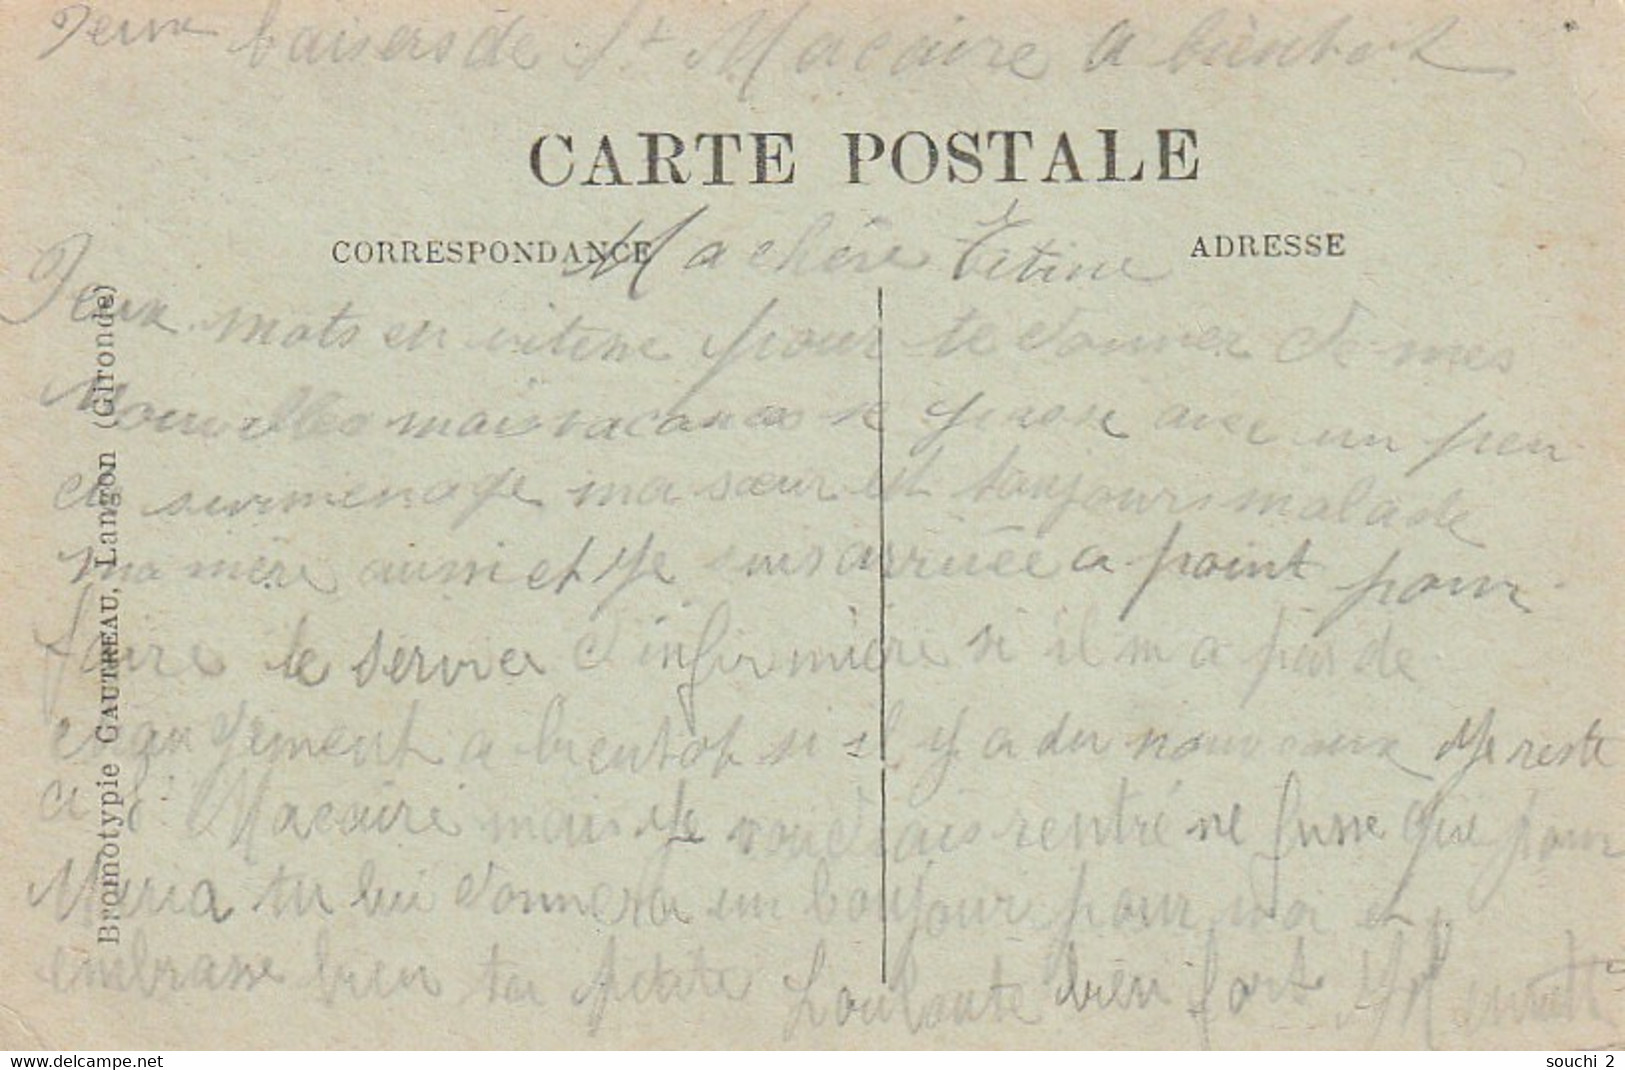 Deux baisers de St Macaire a bientot
CARTE POSTALE
CORRESPONDANCE
ADRESSE
Ma chère Titine
Deux mots en vitesse pour te donner de mes
nouvelles mais vacances se passe avec un peu
de surmenage ma sœur est toujours malade
ma mère aussi et je suis arrivée a point pour
faire le service d'infirmière si il m a pas de
changement a bientot si il y a du nouveaux je reste
a St Macaire mais je voudrais rentré ne fusse que pour
Maria tu lui donnera un bonjour pour moi et
embrasse bien ta petite Louloute bien fort
Bromotypie GAUTREAU, Langon (Gironde)
www.delcampe.net
souchi 2